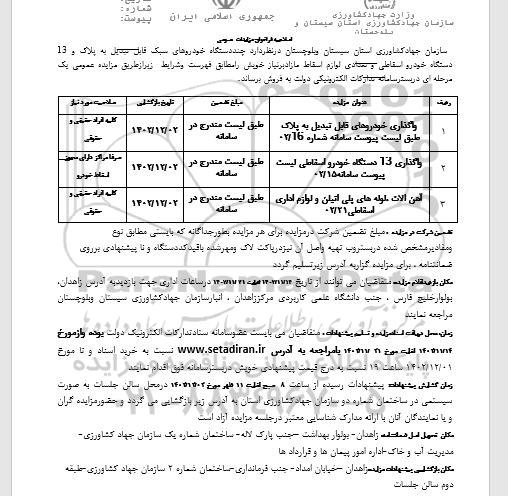 جمهوری اسلامی ایران
شماره:
پیوست:
وزارت جهادکشاورزی
سازمان جهادکشاورزی استان سیستان و
بلوچستان
سازمان جهادکشاورزی استان سیستان وبلوچستان درنظردارد چنددستگاه خودروهای سبک قابل تبدیل به پلاک و 13
دستگاه خودرو اسقاطی و تعدادی لوازم اسقاط مازادبرنیاز خویش رامطابق فهرست وشرایط زیرازطریق مزایده عمومی یک
مرحله ای دربسترسامانه تدارکات الکترونیکی دولت به فروش برساند.
ردیف عنوان مزایده مبلغ تضمین تاریخ بازگشایی صلاحیت مورد نیاز
۱ واگذاری خودروهای قابل تبدیل به پلاک طبق لیست پیوست سامانه شماره 02/16 طبق لیست مندرج در سامانه ۱۴۰۲/۱۲/۰۲ کلیه افراد حقیقی و حقوقی
۲ واگذاری 13 دستگاه خودرو اسقاطی لیست پیوست سامانه۰۲/۱۵ طبق لیست مندرج در سامانه ۱۴۰۲/۱۲/۰۲ صرفا مراکز دارای مجوز اسقاط خودرو
۳ آهن آلات ،لوله های پلی اتیلن و لوازم اداری اسقاطی۰۲/۲۱ طبق لیست مندرج در سامانه ۱۴۰۲/۱۲/۰۲ کلیه افراد حقیقی و حقوقی
تضمین شرکت در مزایده : مبلغ تضمین شرکت درمزایده برای هر مزایده بطورجداگانه که بایستی مطابق نوع
ومقادیرمشخص شده دربستروب تهیه واصل آن نیزدرپاکت لاک ومهرشده باقیدکددستگاه و نا پیشنهادی برروی
ضمانتنامه ، برای مزایده گزاربه آدرس زیرتسلیم گردد
متقاضیان می توانند از تاریخ درساعات اداری جهت بازدیدبه آدرس زاهدان،
بولوارخلیج فارس ، جنب دانشگاه علمی کاربردی مرکززاهدان ، انبارسازمان جهادکشاورزی سیستان وبلوچستان
مراجعه نمایند
متقاضیان می بایست عضوسامانه ستادتدارکات الکترونیک دولت بوده وازمورخ
بامراجعه به آدرس www.setadiran.ir نسبت به خرید اسناد و تا مورخ
۱۴۰۲/۱۲/۰۱ ساعت ۱۹ نسبت به درج قیمت پیشنهادی خویش دربسترسامانه فوق اقدام نمایند
زمان گشایش پیشنهادات: پیشنهادات رسیده از ساعت ۸ صبح درمحل سالن جلسات به صورت
سیستمی در ساختمان شماره دو سازمان جهادکشاورزی استان به آدرس زیر بازگشایی می گردد و حضورمزایده گران
و یا نمایندگان آنان با ارائه مدارک شناسایی معتبر درجلسه مزایده آزاد است
مکان تحویل اصل ضمانتنامه: زاهدان- بولوار بهداشت -جنب پارک لاله- ساختمان شماره یک سازمان جهاد کشاورزی-
مدیریت آب و خاک-اداره امور پیمان ها و قرارداد ها
مکان بازگشایی پیشنهادات مزایده: زاهدان -خیابان امداد- جنب فرمانداری-ساختمان شماره ۲ سازمان جهاد کشاورزی-طبقه
دوم سالن جلسات